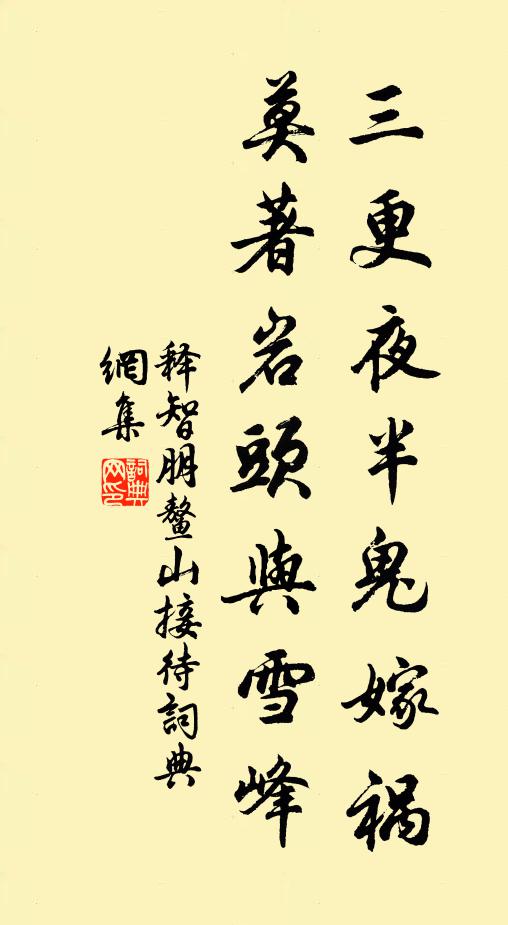 三更夜半鬼嫁祸
莫著岩頭與雪峰
释智朋鳌山接待詞典
網集
詞典
网印